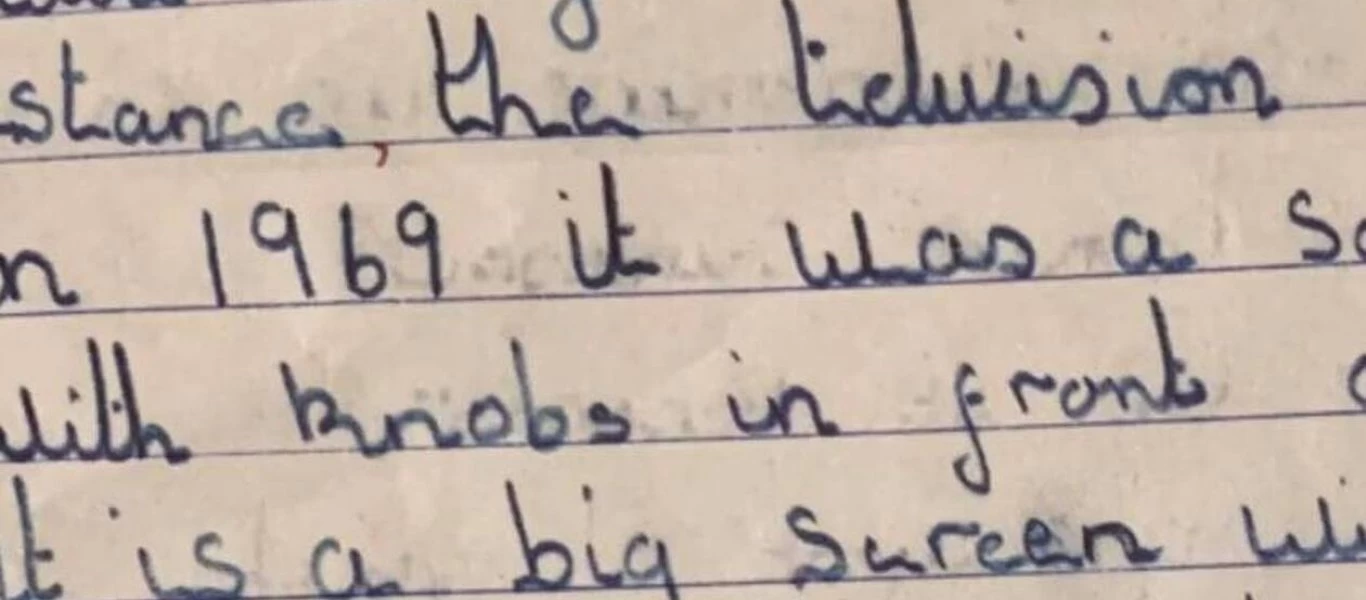 stance, the television
n 1969 it was a s
with knobs in front
it is a big screen wi